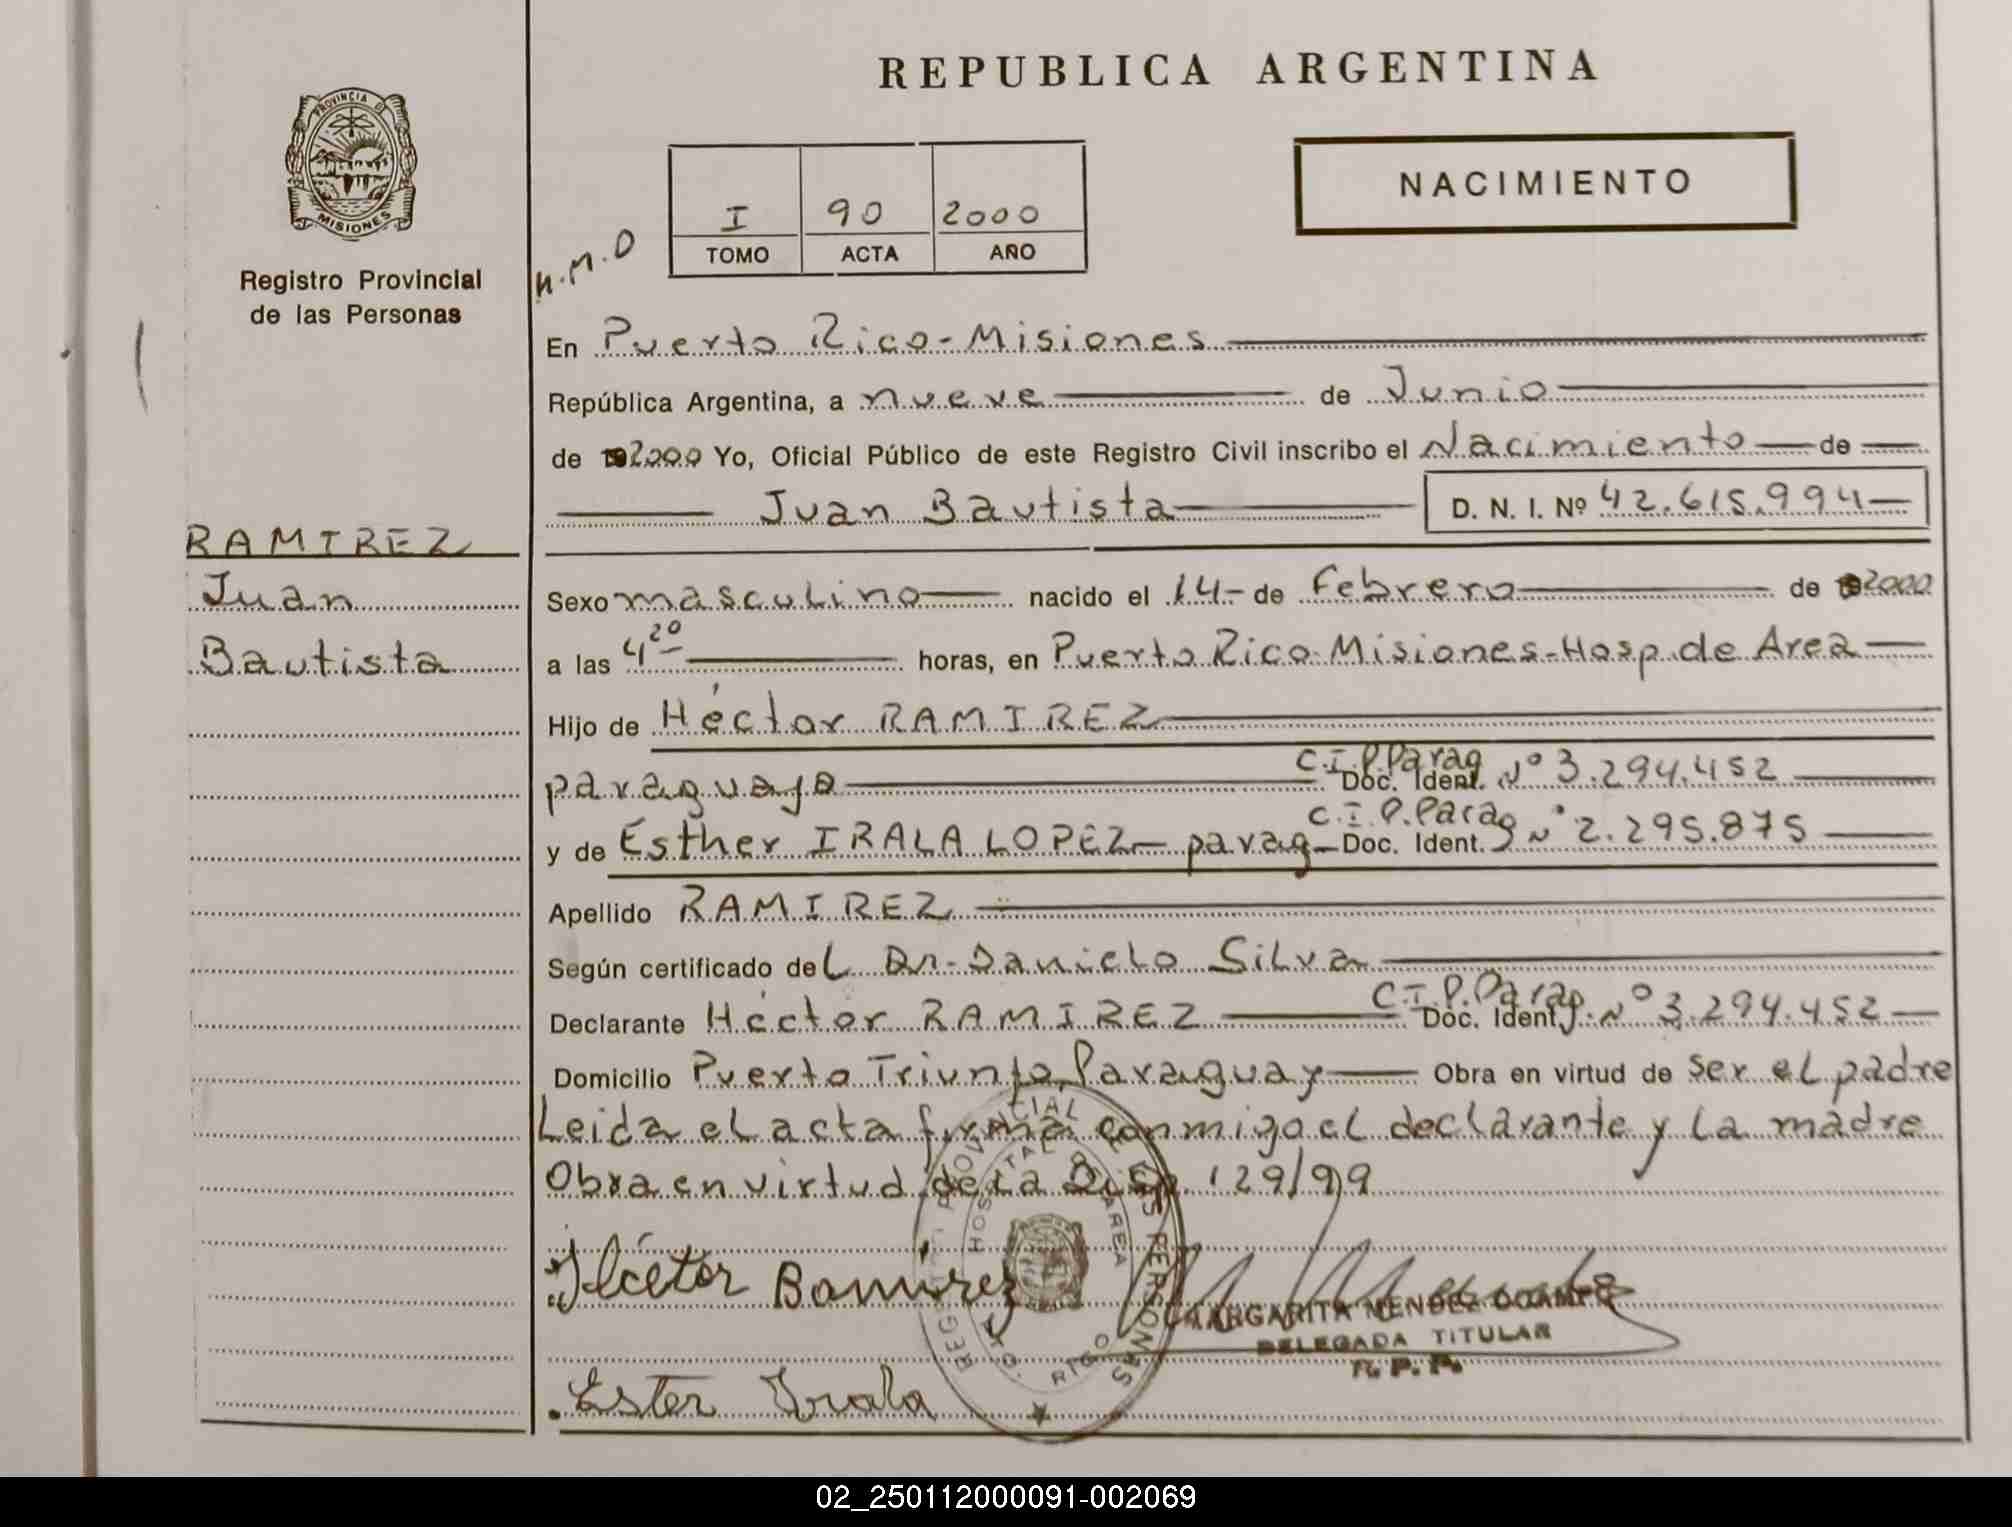 REPUBLICA ARGENTINA
PROVINCIA D
MISIONES
Registro Provincial
de las Personas
I 90 2000
TOMO ACTA AÑO
NACIMIENTO
H.M.O
En Puerto Rico-Misiones
República Argentina, a nueve de Junio
de 2000 Yo, Oficial Público de este Registro Civil inscribo el Nacimiento de
Juan Bautista D. N. I. Nº 42.615.994
RAMIREZ
Juan
Bautista
Sexo masculino nacido el 14- de Febrero de 2000
a las 4 20 horas, en Puerto Rico-Misiones-Hosp. de Area
Hijo de Héctor RAMIREZ
paraguayo C.I.P.Parag Doc. Ident. Nº 3.294.452
y de Esther IRALA LOPEZ- parag- C.I.P.Parag Doc. Ident. Nº 2.295.875
Apellido RAMIREZ
Según certificado del Dr. Danielo Silva
Declarante Héctor RAMIREZ C.I.P.Parag. Doc. Ident. Nº 3.294.452
Domicilio Puerto Triunfo, Paraguay Obra en virtud de ser el padre
Leida el acta firma conmigo el declarante y la madre
Obra en virtud de la Disp. 129/99
REGISTRO PROVINCIAL DE LAS PERSONAS
HOSPITAL DE AREA
PTO. RICO
Héctor Ramírez
MARGARITA MENDEZ OCAMPO
DELEGADA TITULAR
R. P. P.
Ester Irala
02_250112000091-002069